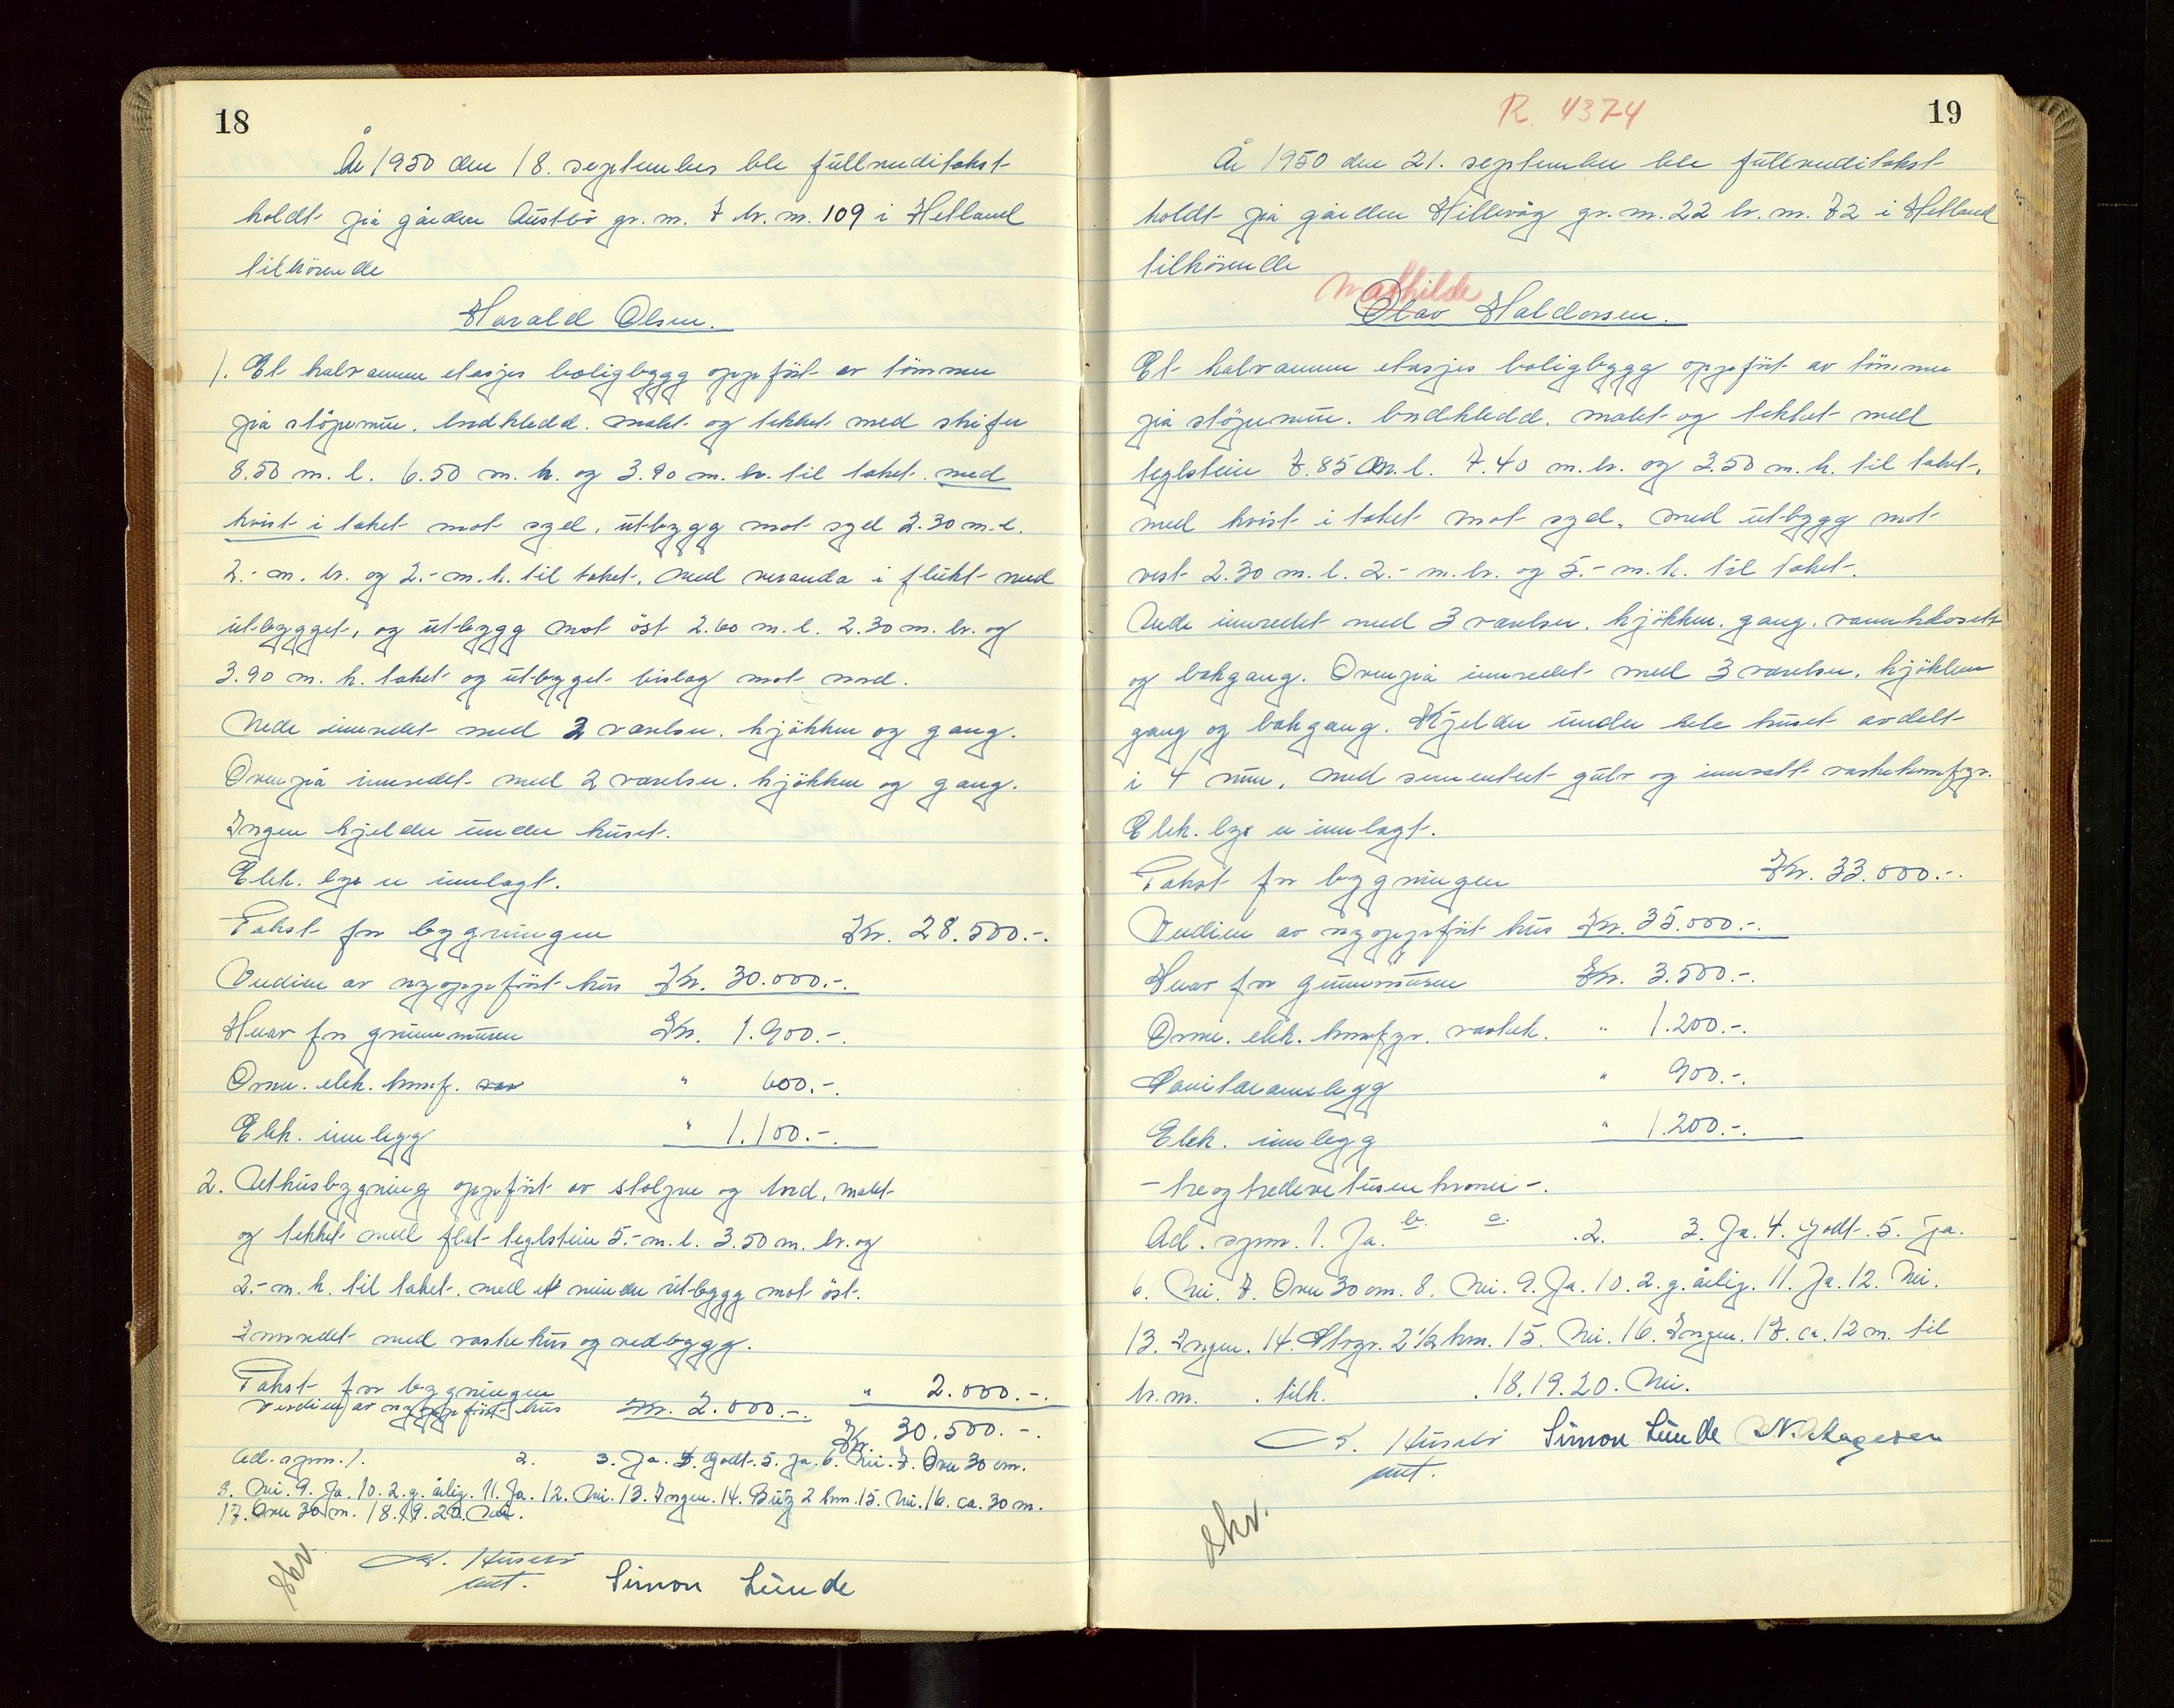 18
År 1950 den 18. september ble fullverditakst
holdt på gården Austbö gr. nr. 7 br. nr. 109 i Hetland
tilhörende
Harald Olsen.
1. Et halvannen etasjes boligbygg oppfört av tömmer
på stöpemur. bordkledd. malt og tekket med skifer
8.50 m. l. 6.50 m. br. og 3.90 m. h. til taket. med
kvist i taket mot syd, utbygg mot syd 2.30 m. l.
2.- m. br. og 2.- m. h. til taket. med veranda i flukt med
utbygget, og utbygg mot öst 2.60 m. l. 2.30 m. br. og
3.90 m. h. taket og utbygget bislag mot nord.
Nede innredet med 2 værelser. kjökken og gang.
Ovenpå innredet med 2 værelser. kjökken og gang.
Ingen kjelder under huset.
Elek. lys er innlagt.
Takst for bygningen Kr. 28.500.-.
Verdien av nyoppfört hus Kr. 30.000.-.
Herav for grunnmuren Kr. 1.900.-.
Ovner. elek. komf. " 600.-.
Elek. innlegg " 1.100.-.
2. Uthusbygning oppfört av stolper og bord, malt
og tekket med flat teglstein 5.- m. l. 3.50 m. br. og
2.- m. h. til taket. med et mindre utbygg mot öst.
Innredet med vaskehus og vedbygg.
Takst for bygningen " 2.000.-.
Verdien av nyoppfört hus Kr. 2.000.-.
Kr. 30.500.-.
Ad. spm. 1. 2. 3. Ja. 4. Godt. 5. Ja. 6. Nei. 7. Over 30 cm.
8. Nei. 9. Ja. 10. 2. g. årlig. 11. Ja. 12. Nei. 13. Ingen. 14. 2 km. 15. Nei. 16. ca. 30 m.
17. Over 30 m. 18. 19. 20. Nei.
skr.
Husebö
Simon Lunde
R. 4374
19
År 1950 den 21. september ble fullverditakst
holdt på gården Hillevåg gr. nr. 22 br. nr. 72 i Hetland
tilhörende
Mathilde
Olav Haldorsen.
Et halvannen etasjes boligbygg oppfört av tömmer
på stöpemur. bordkledd. malt og tekket med
teglstein 7.85 m. l. 7.40 m. br. og 3.50 m. h. til taket.
med kvist i taket mot syd. med utbygg mot
vest 2.30 m. l. 2.- m. br. og 5.- m. h. til taket.
Nede innredet med 3 værelser. kjökken. gang. vannklosett
og bakgang. Ovenpå innredet med 3 værelser. kjökken
gang og bakgang. Kjelder under hele huset avdelt
i 4 rum, med sementert gulv og innsatt vaskekomfyr.
Elek. lys er innlagt.
Takst for bygningen Kr. 33.000.-.
Verdien av nyoppfört hus Kr. 35.000.-.
Herav for grunnmuren Kr. 3.500.-.
Ovner. elek. komfyr. vaskek. " 1.200.-.
Sanitæranlegg " 900.-.
Elek. innlegg " 1.200.-.
- treogtredevetusen kroner -.
Ad. spm. 1. Ja. b. c. 2. 3. Ja. 4. Godt. 5. Ja.
6. Nei. 7. Over 30 cm. 8. Nei. 9. Ja. 10. 2. g. årlig. 11. Ja. 12. Nei.
13. Ingen. 14. 2 1/2 km. 15. Nei. 16. Ingen. 17. ca. 12 m. til
br. nr. . tilh. . 18. 19. 20. Nei.
Husebö Simon Lunde
skr.